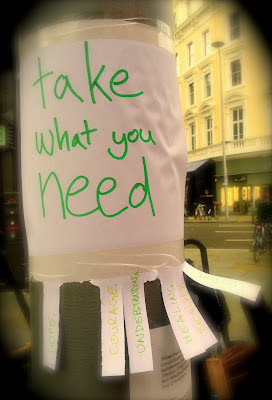 take
what you
need
HOPE.
COURAGE.
UNDERSTANDING
HEALING